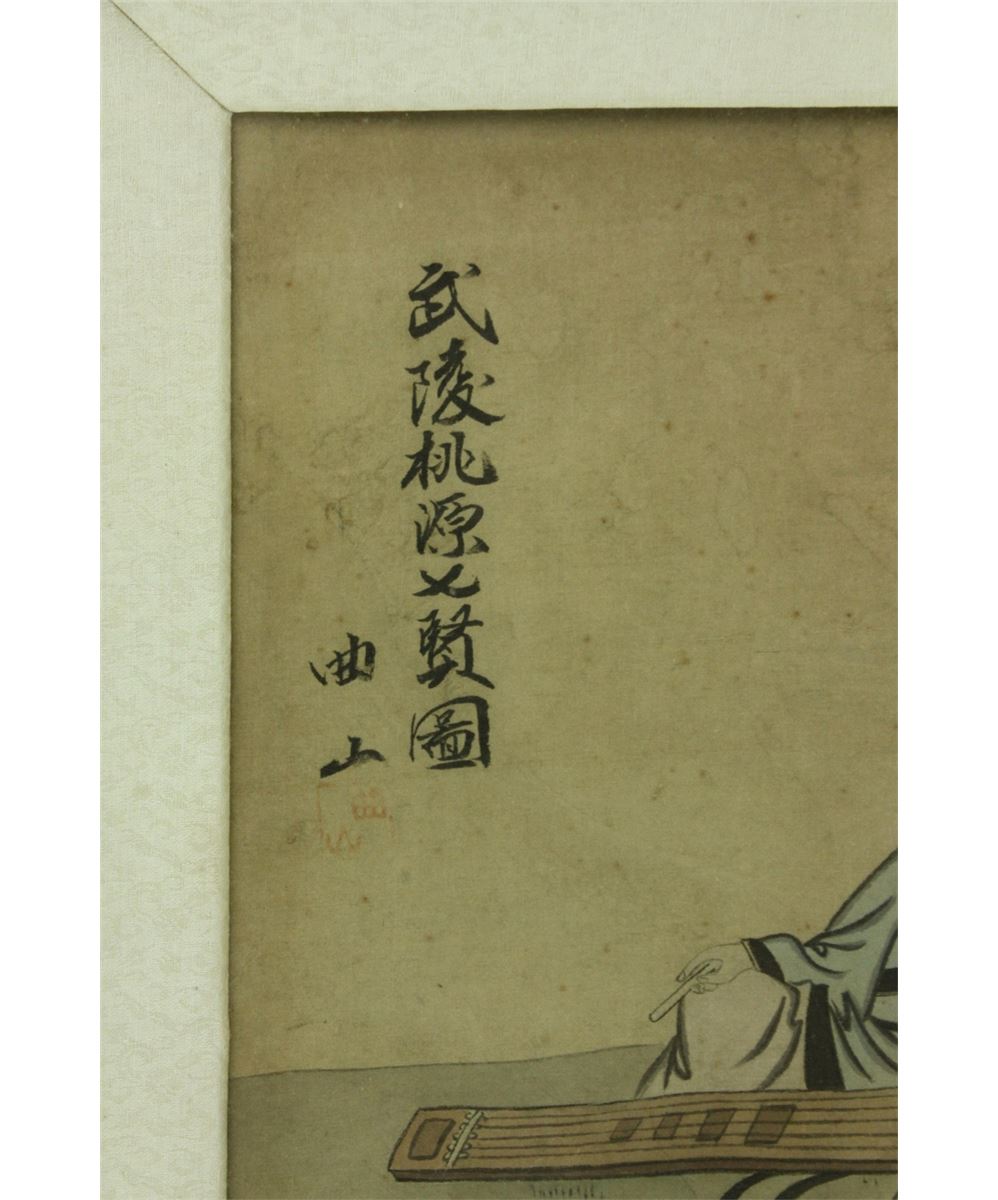 武陵桃源七賢圖
曲山